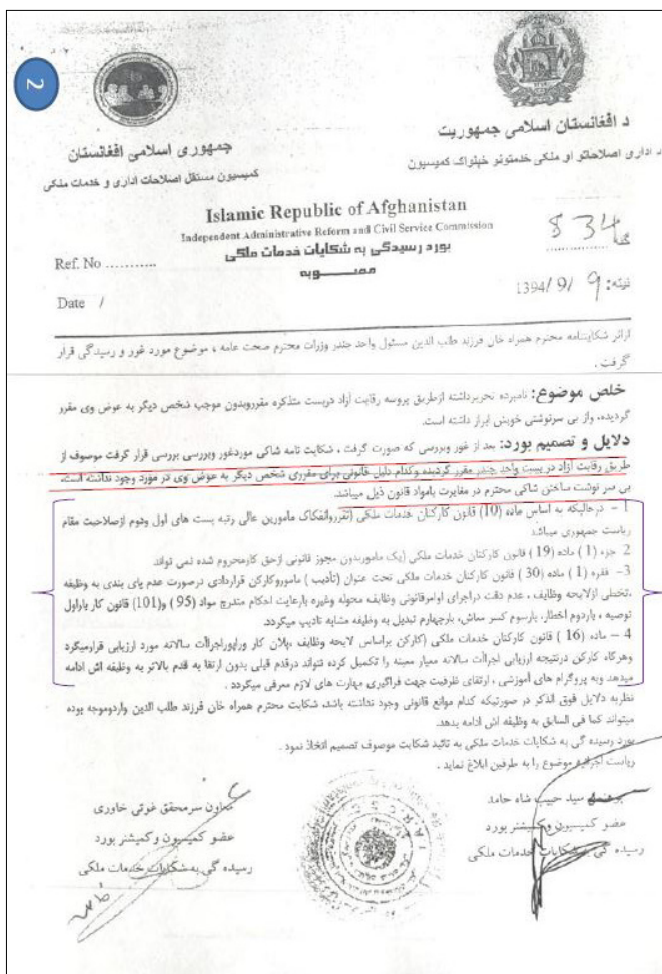 2
د افغانستان اسلامی جمهوریت
د اداری اصلاحاتو او ملکی خدمتونو خپلواک کمیسیون
جمهوری اسلامی افغانستان
کمیسیون مستقل اصلاحات اداری و خدمات ملکی
Islamic Republic of Afghanistan
Independent Administrative Reform and Civil Service Commission
بورد رسیدگی به شکایات خدمات ملکی
مصوبه
834
Ref. No ...........
1394/9/9
Date /
ازاثر شکایتنامه محترم همراه خان فرزند طلب الدین مسئول واحد جندر وزرات محترم صحت عامه ، موضوع مورد غور و رسیدگی قرار
گرفت .
خلص موضوع: نامبرده تحریرداشته ازطریق پروسه رقابت آزاد دربست متذکره مقرروبدون موجب شخص دیگر به عوض وی مقرر
گردیده، واز بی سرنوشتی خویش ابراز داشته است.
دلایل و تصمیم بورد: بعد از غور وبررسی که صورت گرفت ، شکایت نامه شاکی موردغور وبررسی بررسی قرار گرفت موصوف از
طریق رقابت آزاد در بست واحد جندر مقرر گردیده وکدام دلیل قانونی برای مقرری شخص دیگر به عوض وی در مورد وجود نداشته است.
بی سر نوشت ساختن شاکی محترم در مغایرت بامواد قانون ذیل میباشد.
1 – درحالیکه به اساس ماده (10) قانون کارکنان خدمات ملکی (تقرروانفکاک مامورین عالی رتبه بست های اول ودوم ازصلاحیت مقام
ریاست جمهوری میباشد
2 جزء (1) ماده (19) قانون کارکنان خدمات ملکی (یک ماموربدون مجوز قانونی ازحق کارمحروم شده نمی تواند
3– فقره (1) ماده (30) قانون کارکنان خدمات ملکی تحت عنوان (تأدیب) ماموروکارکن قراردادی درصورت عدم پای بندی به وظیفه
،تخطی ازلایحه وظایف ، عدم دقت دراجرای اوامرقانونی وظایف محوله وغیره بارعایت احکام مندرج مواد (95) و(101) قانون کار باراول
توصیه ، باردوم اخطار، بارسوم کسر معاش، بارچهارم تبدیل به وظیفه مشابه تادیب میگردد.
4 – ماده (16) قانون کارکنان خدمات ملکی (کارکن براساس لایحه وظایف ،پلان کار وراپوراجراآت سالانه مورد ارزیابی قرارمیگرد
وهرگاه کارکن درنتیجه ارزیابی اجراآت سالانه معیار معینه را تکمیل کرده نتواند درقدم قبلی بدون ارتقا به قدم بالاتر به وظیفه اش ادامه
میدهد وبه پروگرام های آموزشی ، ارتقای ظرفیت جهت فراگیری مهارت های لازم معرفی میگردد .
نظربه دلایل فوق الذکر در صورتیکه کدام موانع قانونی وجود نداشته باشد، شکایت محترم همراه خان فرزند طلب الدین واردوموجه بوده
میتواند کما فی السابق به وظیفه اش ادامه بدهد.
بورد رسیده گی به شکایات خدمات ملکی به تائید شکایت موصوف تصمیم اتخاذ نمود .
ریاست اجرائیه موضوع را به طرفین ابلاغ نماید .
سید حبیب شاه حامد
عضو کمیسیون وکمیشنر بورد
رسیده گی به شکایات خدمات ملکی
معاون سرمحقق غوثی خاوری
عضو کمیسیون وکمیشنر بورد
رسیده گی به شکایات خدمات ملکی